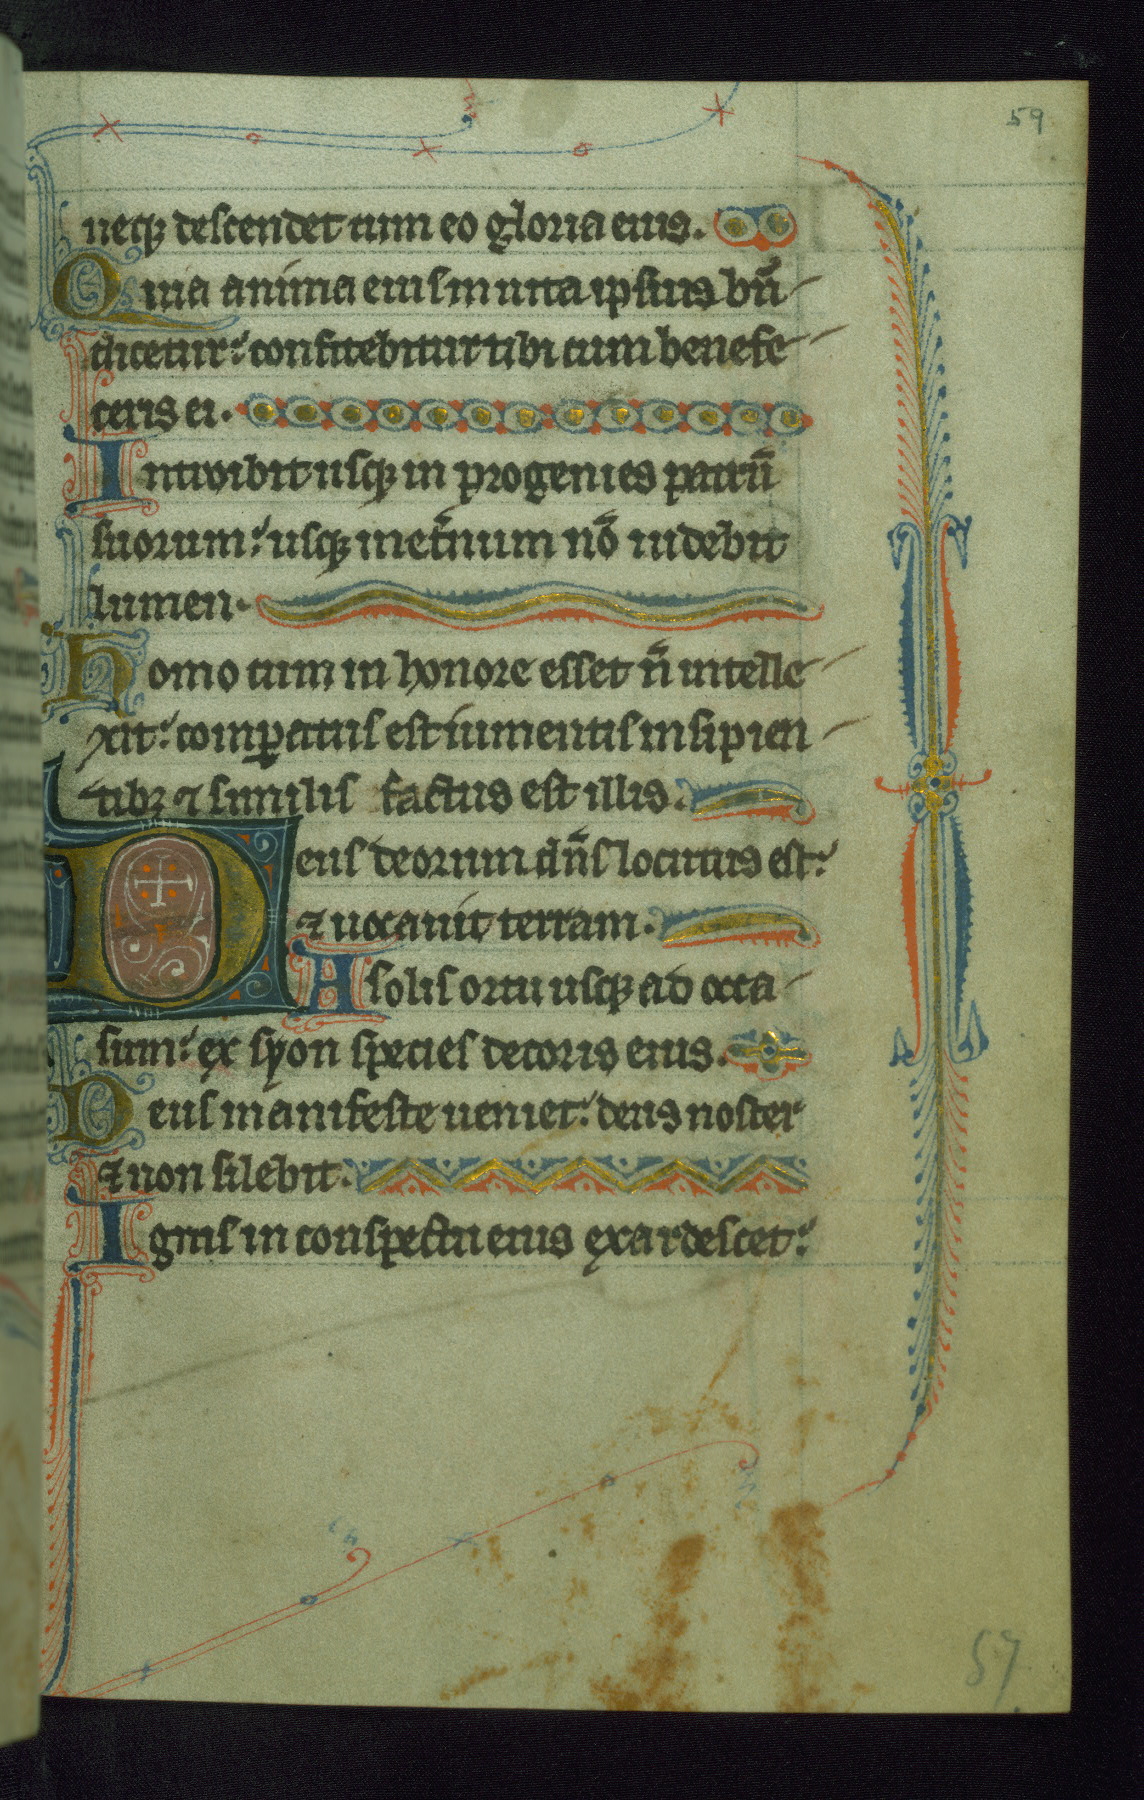 59
neqꝫ descendet cum eo gloria eius.
Quia anima eius in uita ipsius bn̄
dicetur: confitebitur tibi cum benefe
ceris ei.
Introibit usqꝫ in progenies patrū
suorum: usqꝫ in et̄num nō uidebit
lumen.
Homo cum in honore esset n̄ intelle
xit: comꝑatus est iumentis insipien
tibꝫ ⁊ similis factus est illis.
Deus deorum dn̄s locutus est:
⁊ uocauit terram.
A solis ortu usqꝫ ad occa
sum: ex syon species decoris eius.
Deus manifeste ueniet: deus noster
⁊ non silebit.
Ignis in conspectu eius exardescet:
57